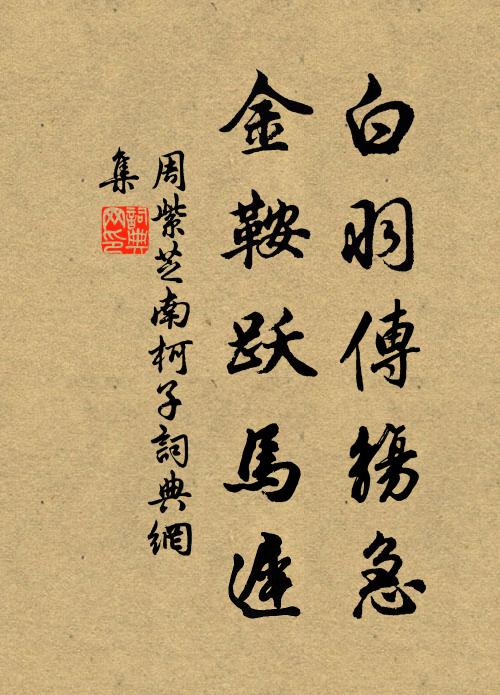 白羽傳觴急
金鞍跃馬遲
周紫芝南柯子詞典網
集
詞典
网印